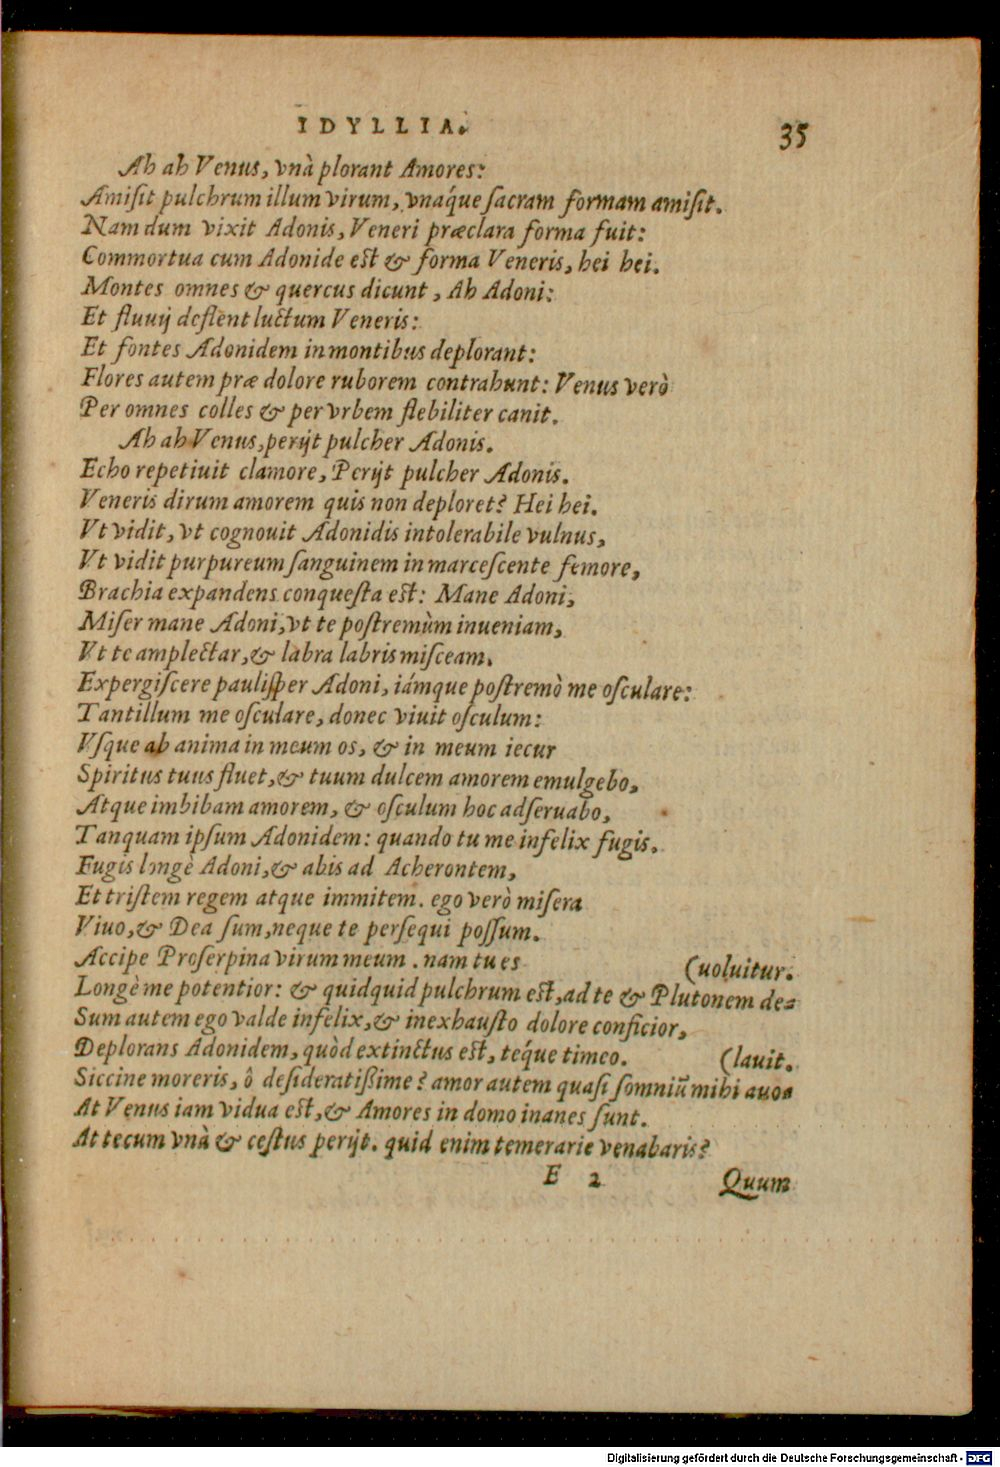 IDYLLIA. 35
Ah ah Venus, vnà plorant Amores:
Amiſit pulchrum illum virum, vnáque ſacram formam amiſit.
Nam dum vixit Adonis, Veneri præclara forma fuit:
Commortua cum Adonide eſt & forma Veneris, hei hei.
Montes omnes & quercus dicunt, Ah Adoni:
Et fluuij deflent luctum Veneris:
Et fontes Adonidem in montibus deplorant:
Flores autem præ dolore ruborem contrahunt: Venus verò
Per omnes colles & per vrbem flebiliter canit.
Ah ah Venus, perijt pulcher Adonis.
Echo repetiuit clamore, Perijt pulcher Adonis.
Veneris dirum amorem quis non deploret? Hei hei.
Vt vidit, vt cognouit Adonidis intolerabile vulnus,
Vt vidit purpureum ſanguinem in marceſcente femore,
Brachia expandens conqueſta eſt: Mane Adoni,
Miſer mane Adoni, vt te poſtremùm inueniam,
Vt te amplectar, & labra labris miſceam.
Expergiſcere pauliſper Adoni, iámque poſtremò me oſculare:
Tantillum me oſculare, donec viuit oſculum:
Vſque ab anima in meum os, & in meum iecur
Spiritus tuus fluet, & tuum dulcem amorem emulgebo,
Atque imbibam amorem, & oſculum hoc adſeruabo,
Tanquam ipſum Adonidem: quando tu me infelix fugis.
Fugis longè Adoni, & abis ad Acherontem,
Et triſtem regem atque immitem. ego verò miſera
Viuo, & Dea ſum, neque te perſequi poſſum.
Accipe Proſerpina virum meum. nam tu es (uoluitur.
Longè me potentior: & quidquid pulchrum eſt, ad te & Plutonem de-
Sum autem ego valde infelix, & inexhauſto dolore conficior,
Deplorans Adonidem, quòd extinctus eſt, téque timeo. (lauit.
Siccine moreris, ô deſideratiſſime? amor autem quaſi ſomniũ mihi auo-
At Venus iam vidua eſt, & Amores in domo inanes ſunt.
At tecum vnà & ceſtus perijt. quid enim temerarie venabaris?
E 2 Quum
Digitalisierung gefördert durch die Deutsche Forschungsgemeinschaft - DFG